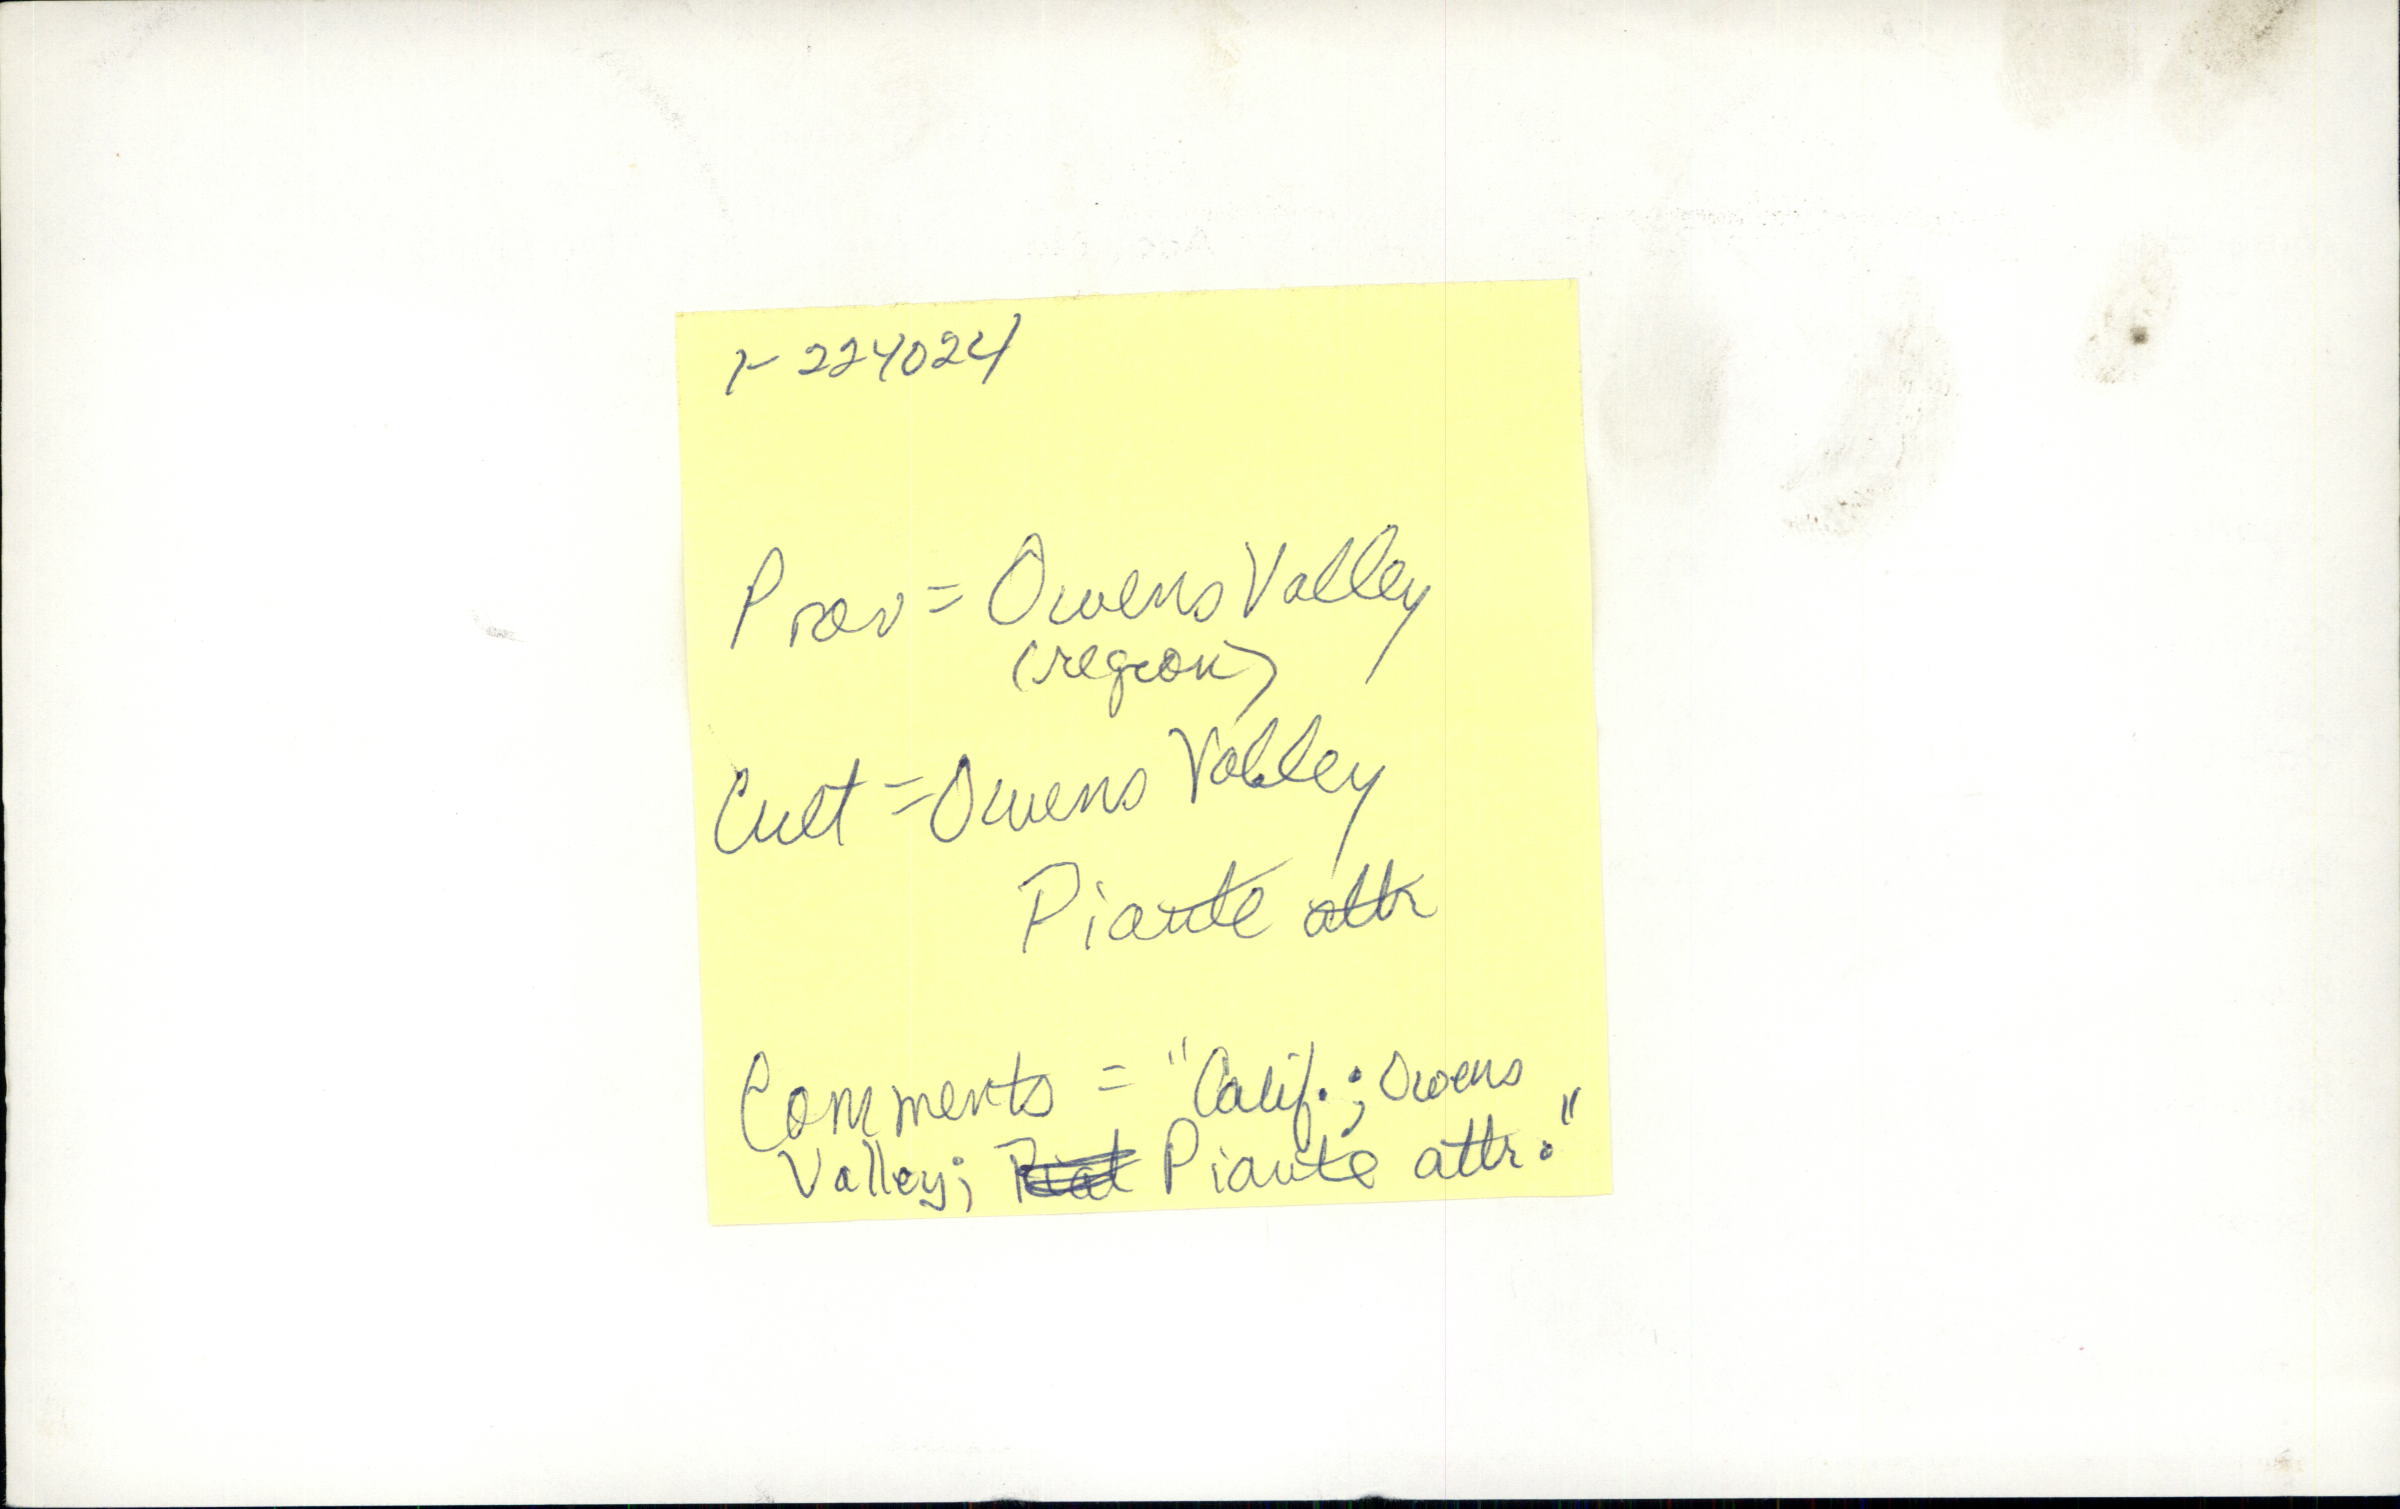 1-224024
Prov = Owens Valley
(region)
Cult = Owens Valley
Piaute attr
Comments = "Calif.; Owens
Valley; Piaute attr."